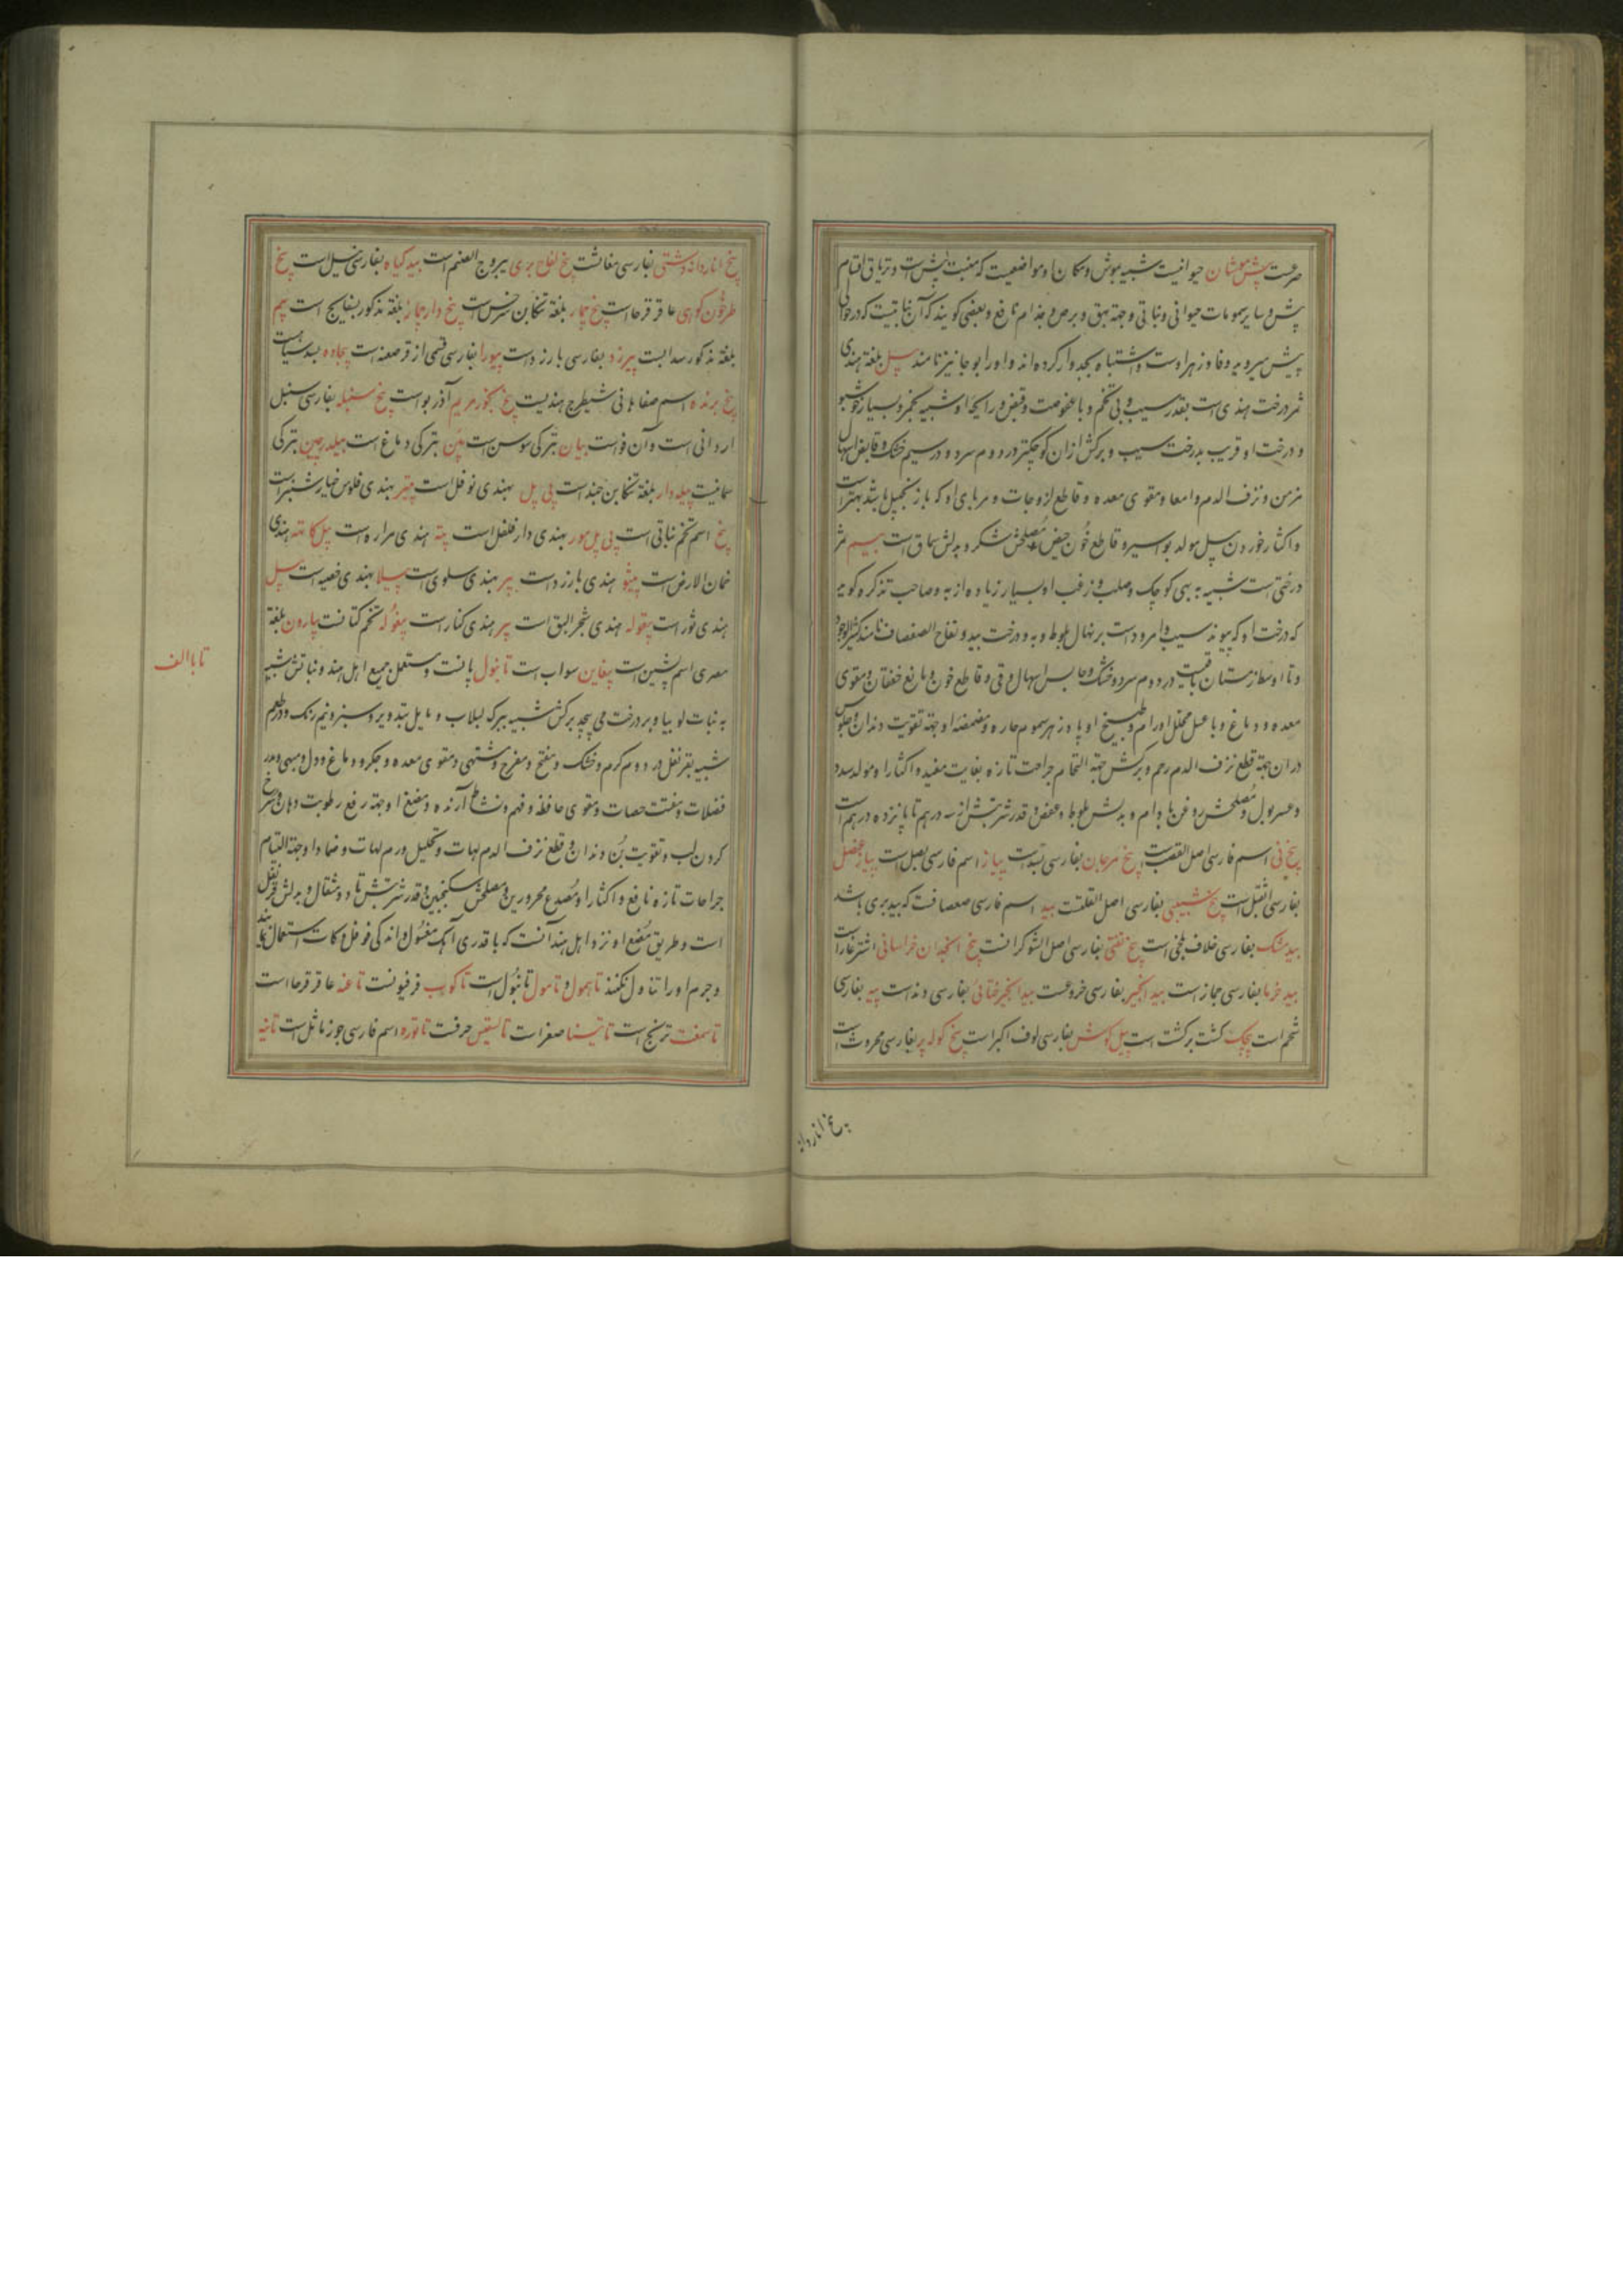 حرعت بیش موشان حیوانیست شبیه بموش و مکان او مواضعیست که منبت بیش است و تریاق اقسام
بیش و سایر سمومات حیوانی و نباتی و جهة بهق و برص و جذام نافع و بعضی کویند که آن نباتیست که در حوالی
بیش میروید و فادزهر اوست و اشتباه بجدوار کرده اند و او را بوحا نیز نامند بیل بلغة هندی
ثمر درخت هندی است بقدر سیب و بی تخم و با عفوصت و قبض و رایحه او شبیه بخمر و بسیار خوشبو
و درخت او قریب بدرخت سیب و برکش ازان کوچکتر در دوم سرد و در سیم خشک و قابض اسهال
مزمن و نزف الدم و امعا و مقوی معده و قاطع لزوجات و مربای او که با زنجبیل باشد بهتر است
و اکثار خوردن بیل مولد بواسیر و قاطع خون حیض و مصلحش شکر و بدلش سماق است بیسم ثمر
درختی است شبیه به بهی کوچک و صلب و زغب او بسیار زیاده از به و صاحب تذکره کوید
که درخت او که پیوند سیب و امرودست بر نهال بلوط و به و درخت بید و تفاح الصفصاف نامند کثیر الوجود
و تا اواسط زمستان باقیست در دوم سرد و خشک و حابس اسهال و قی و قاطع خون و مانع خفقان و مقوی
معده و دماغ و با عسل محلل اورام و طبیخ او پادزهر سموم حاره و مضمضه او جهة تقویت دندان و جلوس
در ان جهة قطع نزف الدم رحم و برکش جهة التحام جراحت تازه بغایت مفید و اکثار او مولد سدد
و عسر بول و مصلحش روغن بادام و بدلش بلوط و عفص و قدر شربتش از سه درهم تا پانزده درهم است
بیخ نی اسم فارسی اصل القصب است بیخ مرجان بفارسی بسد است پیاز اسم فارسی بصل است پیاز عنصل
بفارسی اشقیل است بیخ شبیبی بفارسی اصل العلقت بید اسم فارسی صفصافت که بید بری باشد
بید مشک بفارسی خلاف بلخی است بیخ تفتی بفارسی اصل الشوکرانست بیخ انجدان خراسانی اشترغار است
بید خرما بفارسی حجاز است بید انجیر بفارسی خروعست بید انجیر خطائی بفارسی دند است پیه بفارسی
شحم است پیچک کشت برکشت است پیل کوش بفارسی لوف اکبر است بیخ کوله پر بفارسی محروث است
بیخ اناردانه
بیخ اناردانه دشتی بفارسی مغاثست بیخ لفاح بری یبروج الصنم است بید کیاه بفارسی ثیل است بیخ
طرخون کوهی عاقرقرحا است بیخ چمار بلغة تنکابن سرخس است بیخ دار چماز بلغة مذکور بسفایج است پیم
بلغة مذکور سدابست بیرزد بفارسی بارزد است بیورا بفارسی قسمی از قرصعنه است بیجاده بسد سیاه است
بیخ برنده اسم صفاهانی شیطرج هندیست بیخ بخور مریم آذربو است بیخ سنبله بفارسی سنبل
اردانی است و آن فو است بیان بترکی سوس است بین بترکی دماغ است بیلدرجین بترکی
سمانیست پیله دار بلغة تنکابن حبند است پی پل بهندی نوفل است پیتر بهندی فلوس خیار شنبر است
بیخ اسم تخم نباتی است پی پل مور بهندی دار فلفل است پته هندی مراره است پیل کاتهه هندی
خمان الارض است پیثو هندی بارزد است بیر بهندی سلوی است پیلا بهندی خصیه است بیل
هندی ثور است پیقوله هندی شجر البق است پیر هندی کنار است پیغوله تخم کتانست پیارون بلغة
مصری اسم پشین است پیغاین سواب است تانبول پانست و مستعمل جمیع اهل هند و نباتش شبیه
تا با الف
به نبات لوبیا و بر درخت می پیچد برکش شبیه ببرک لبلاب و مایل بتدویر و سبز و نیم رنک و در طعم
شبیه بقرنفل در دوم کرم و خشک و مفتح و مفرح و مشتهی و مقوی معده و جکر و دماغ و دل و مبهی و مدر
فضلات و مفتت حصات و مقوی حافظه و فهم و نشاط آرنده و مضغ او جهة رفع رطوبت دهان و سرخ
کردن لب و تقویت بن دندان و قطع نزف الدم لهات و تحلیل ورم لهات و ضماد او جهة التیام
جراحات تازه نافع و اکثار او مصدع محرورین و مصلحش سکنجبین و قدر شربتش تا دو مثقال و بدلش قرنفل
است و طریق مضغ او نزد اهل هند آنست که با قدری آهک مغسول و اندکی فوفل و کات استعمال نمایند
و جرم او را تناول نکنند تاهمول و تامول تانبول است تاکوب فرفیونست تاغه عاقرقرحا است
تاسمغت ترنج است تاتیسنا صغر است تالسقیس حرفت تاتوره اسم فارسی جوز ماثل است تانه